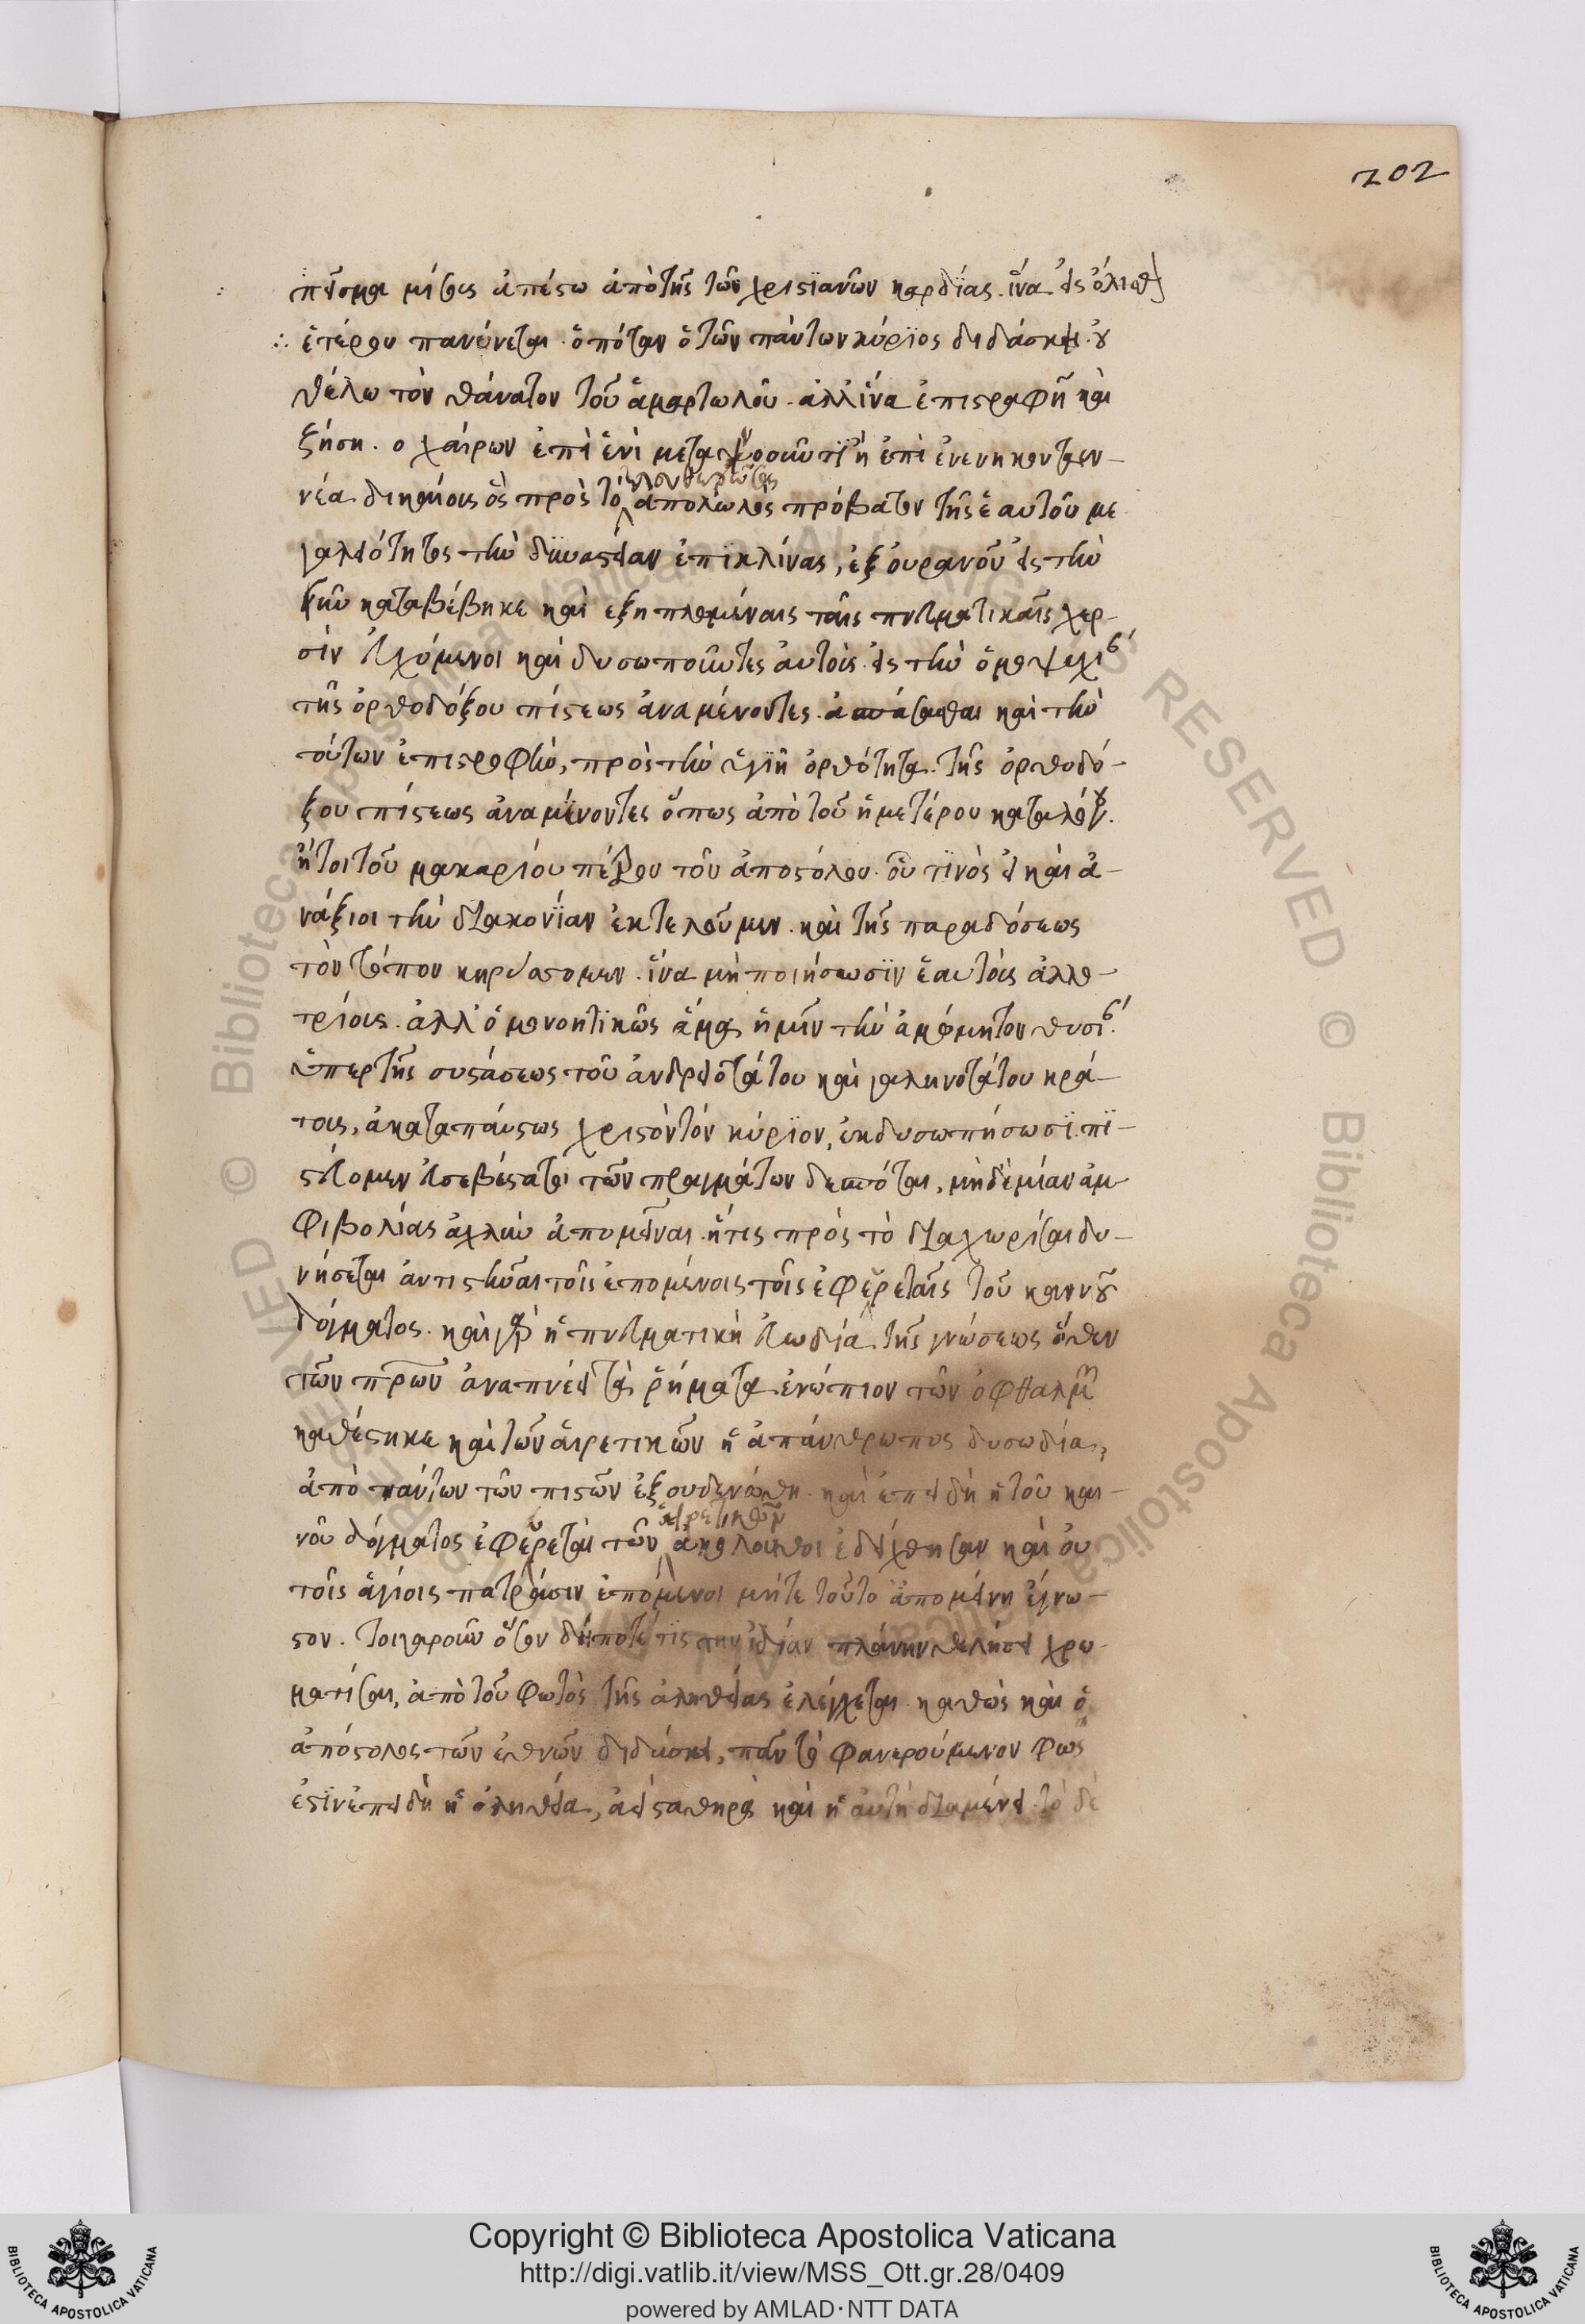 202
πτσμα μίσος ἀπέστω ἀπὸ τῆς τῶν χριστϊανῶν καρδΐας. ἵνα
ἑτέρου παγύνεται. ὁπόταν ὁ τῶν πάντων κύρϊος διδάσκει. οὐ
θέλω τὸν θάνατον τοῦ ἁμαρτωλοῦ. ἀλλ' ἵνα ἐπιστραφῆ καὶ
ζήση. ο χαίρων ἐπὶ ἑνὶ μετανοοῦντϊ ἢ ἐπὶ ἐνενηκονταεν-
νέα δικαίοις ὃς πρὸς τὸ ἀπολωλὸς πρόβατον τῆς ἑαυτοῦ με
γαλειότητος τὴν δϋναστείαν ἐπϊκλίνας, ἐξ οὐρανοῦ εἰς τὴν
γῆν καταβέβηκε καὶ εξηπλωμέναις ταῖς πνευματικαῖς χερ-
σίν εὐχόμενοι καὶ δυσωποῦντες αὐτοὺς εἰς τὴν ὁμοψυχί
τῆς ὀρθοδόξου πίστεως ἀναμένοντες. ἀσπάσασθαι καὶ τὴν
τούτων ἐπιστροφὴν, πρὸς τὴν ὑγιῆ ὀρθότητα τῆς ὀρθοδό-
ξου πίστεως ἀναμένοντες ὅπως ἀπὸ τοῦ ἡμετέρου καταλόγου.
ἤτοι τοῦ μακαρίου πέτρου τοῦ ἀποστόλου. οὗ τϊνὸς εἰ καὶ ἀ-
νάξιοι τὴν διακονΐαν ἐκτελοῦμεν. καὶ τῆς παραδόσεως
τὸν τόπον κηρύσσομεν. ἵνα μὴ ποιήσωσϊν ἑαυτοὺς ἀλλο-
τρίους. ἀλλ' ὁμονοητϊκῶς ἅμα ἡμῖν τὴν ἀμώμητον θυσί.
ὑπερ τῆς συστάσεως τοῦ ἀνδρειοτάτου καὶ γαληνοτάτου κρά-
τους, ἀκαταπαύστως χριστὸν τὸν κύρϊον, ἐκδυσωπήσωσϊ. πϊ-
στεύομεν εὐσεβέστατοι τῶν πραγμάτων δεσπόται, μηδεμίαν ἀμ-
φιβολίας ἀχλὺν ἀπομεῖναι. ἥτις πρὸς τὸ διαχωρίσαι δυ-
νήσεται ἀντιστῆναι τοῖς ἑπομένοις τοῖς ἐφευρεταῖς τοῦ καινοῦ
δόγματος. καὶ γὰρ ἡ πνευματικὴ εὐωδία τῆς γνώσεως ὅθεν
τῶν πρων ἀναπνέει τὰ ῥήματα ἐνώπιον τῶν ὀφθαλμ
καθέστηκε καὶ τῶν αἱρετικῶν ἡ ἀπάνθρωπος δυσωδία,
ἀπὸ πάντων τῶν πιστῶν ἐξουδενώθη. καὶ ἐπειδὴ ἡ τοῦ και-
νοῦ δόγματος ἐφευρεταὶ τῶν αἱρετικῶν ἀκόλουθοι ἐδείχθησαν καὶ οὐ
τοῖς ἁγίοις πατράσιν ἑπόμενοι μήτε τοῦτο ἀπομείνη ἄγνω-
στον. τοιγαροῦν ὅταν δήποτέ τις την ἰδΐαν πλάνην θελήσει χρω-
ματίσαι, ἀπὸ τοῦ φωτὸς τῆς ἀληθείας ἐλέγχεται. καθὼς καὶ ὁ
ἀπόστολος τῶν ἐθνῶν διδάσκει, πᾶν τὸ φανερούμενον φῶς
ἐστϊν ἐπειδὴ ἡ ἀλήθεια, ἀεὶ σταθηρὰ καὶ ἡ αὐτὴ διαμένει. τὸ δὲ
Copyright © Biblioteca Apostolica Vaticana
http://digi.vatlib.it/view/MSS_Ott.gr.28/0409
powered by AMLAD·NTT DATA